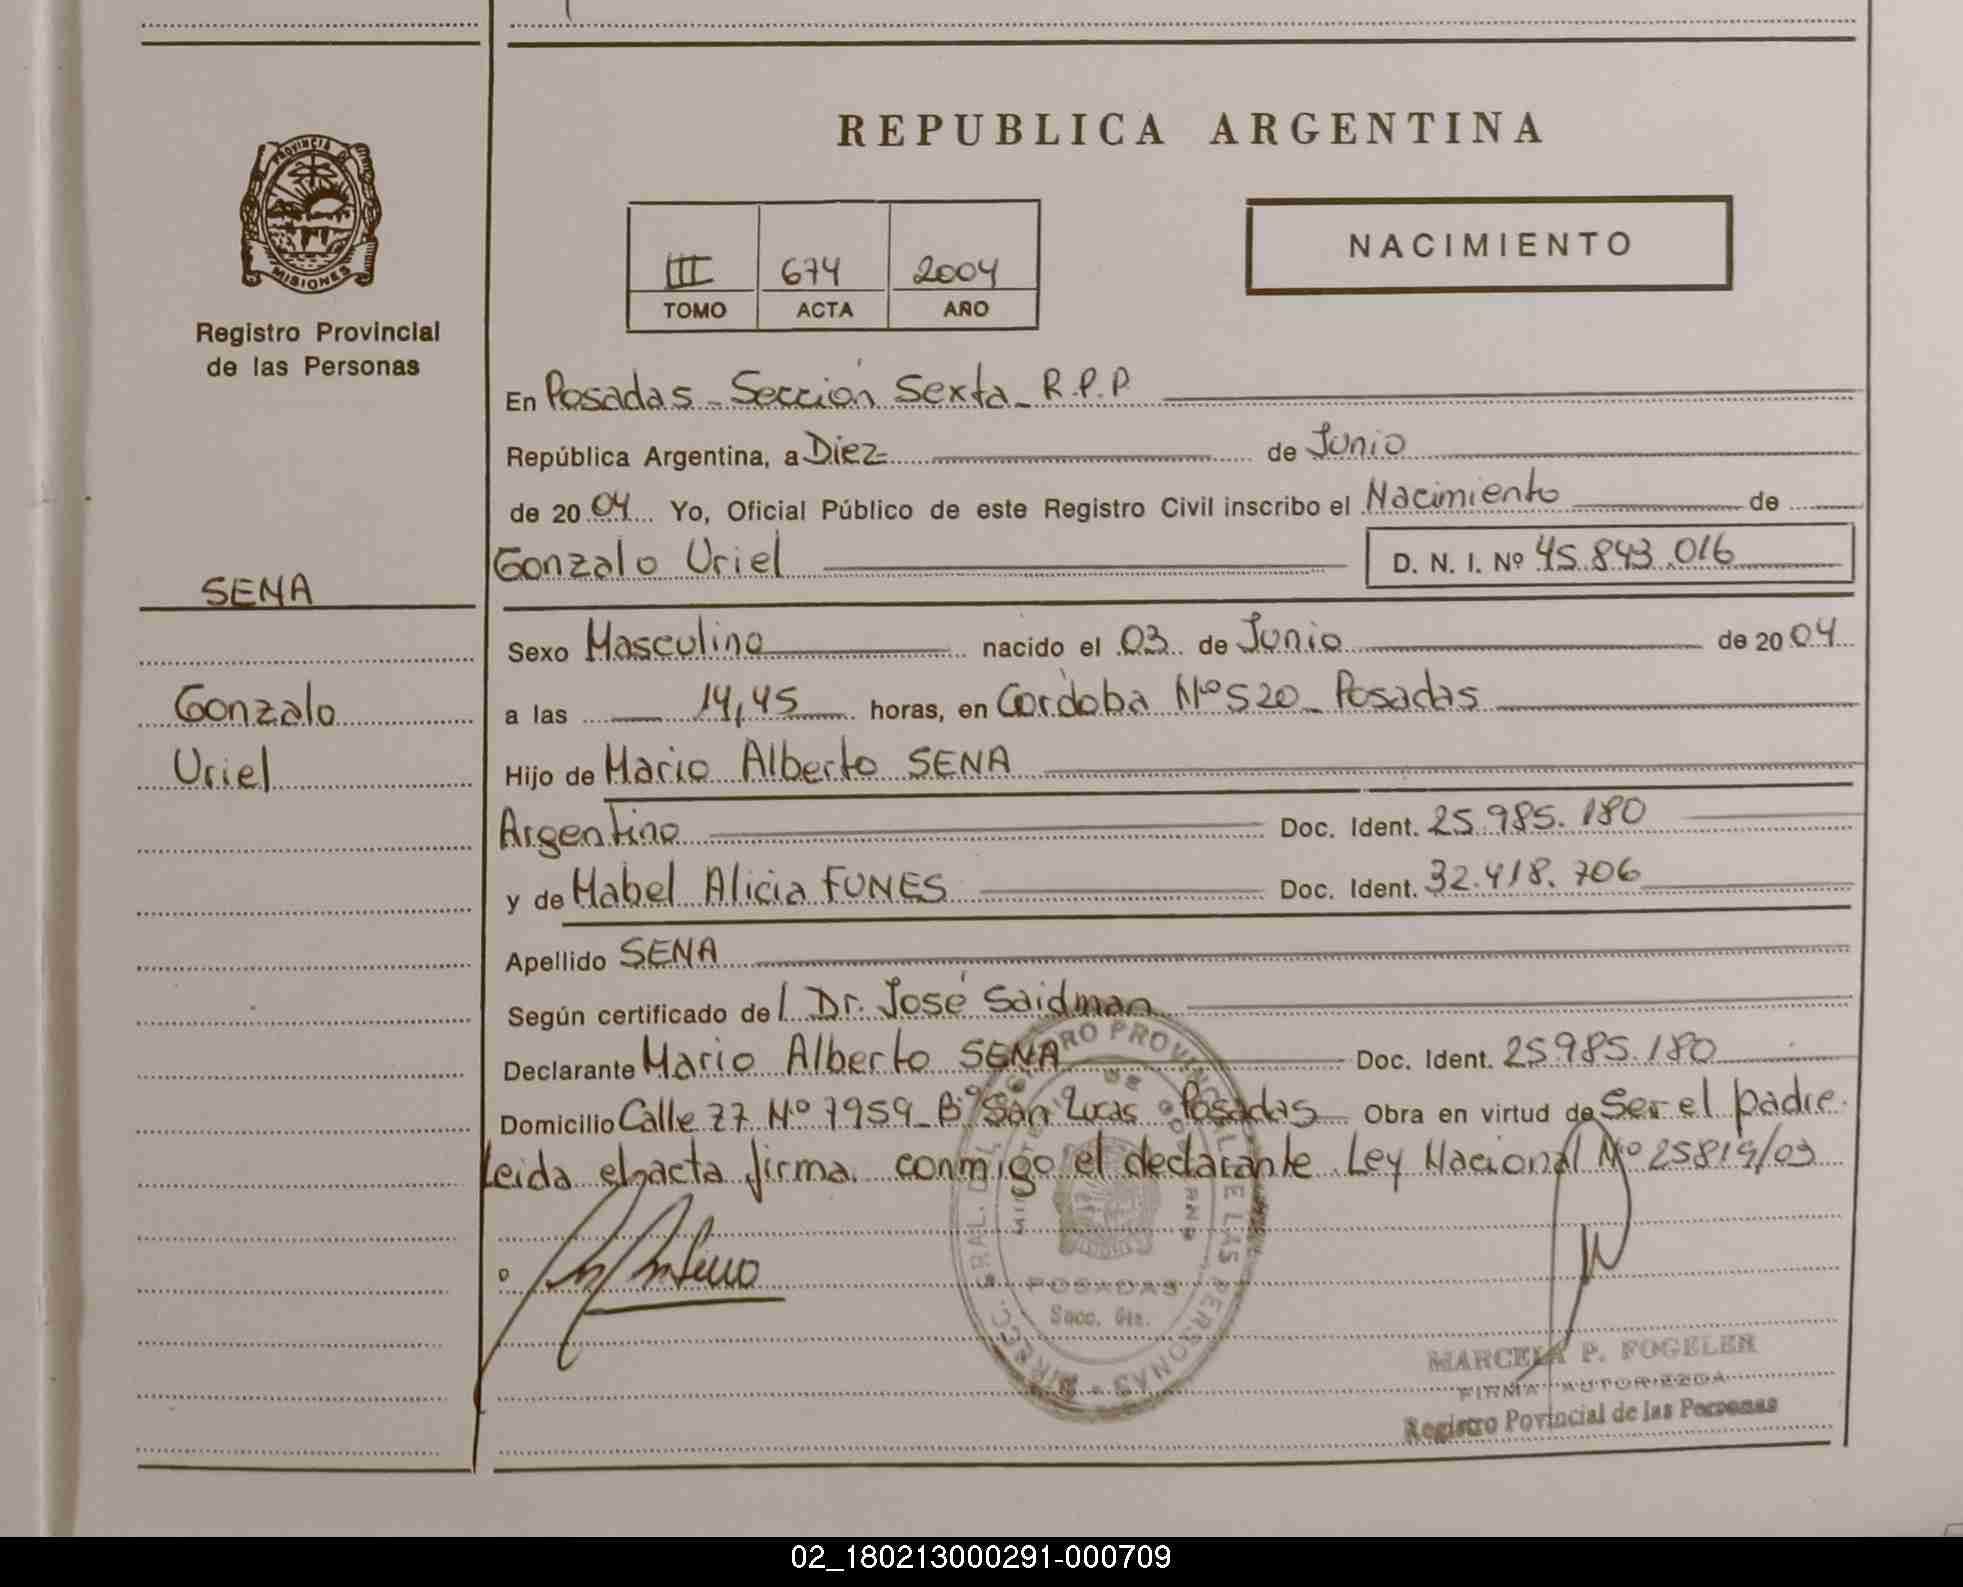 REPUBLICA ARGENTINA
PROVINCIA DE
MISIONES
Registro Provincial
de las Personas
III 674 2004
TOMO ACTA AÑO
NACIMIENTO
En Posadas - Sección Sexta - R.P.P.
República Argentina, a Diez de Junio
de 2004 Yo, Oficial Público de este Registro Civil inscribo el Nacimiento de
Gonzalo Uriel D. N. I. Nº 45.843.016
SENA
Gonzalo
Uriel
Sexo Masculino nacido el 03 de Junio de 2004
a las 14,45 horas, en Córdoba Nº 520 - Posadas
Hijo de Mario Alberto SENA
Argentino Doc. Ident. 25.985.180
y de Mabel Alicia FUNES Doc. Ident. 32.418.706
Apellido SENA
Según certificado del Dr. José Saidman
Declarante Mario Alberto SENA Doc. Ident. 25.985.180
Domicilio Calle 77 Nº 7959 - Bº San Lucas - Posadas Obra en virtud de Ser el padre.
Leida el acta firma conmigo el declarante Ley Nacional Nº 25819/03
POSADAS
Secc. 6ta.
MARCELA P. FOGELER
FIRMA AUTORIZADA
Registro Povincial de las Personas
02_180213000291-000709